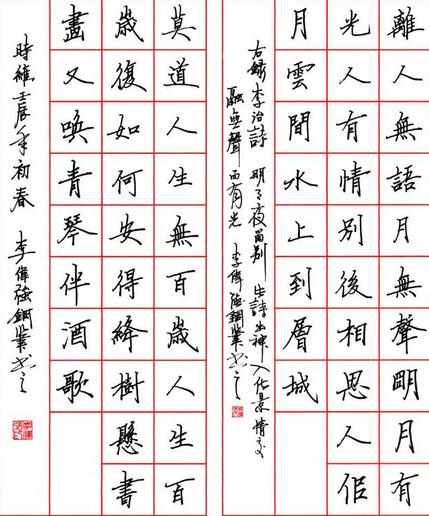 離人無語月無聲明月有
光人有情別後相思人佀
月雲間水上到層城
右錄李治詩 明月夜留別 此詩出神入化景情交
融無聲而有光 李偉強鋼筆书之
莫道人生無百歲人生百
歲復如何安得絳樹懸書
畫又喚青琴伴酒歌
時維壬辰年初春 李偉強鋼筆书之